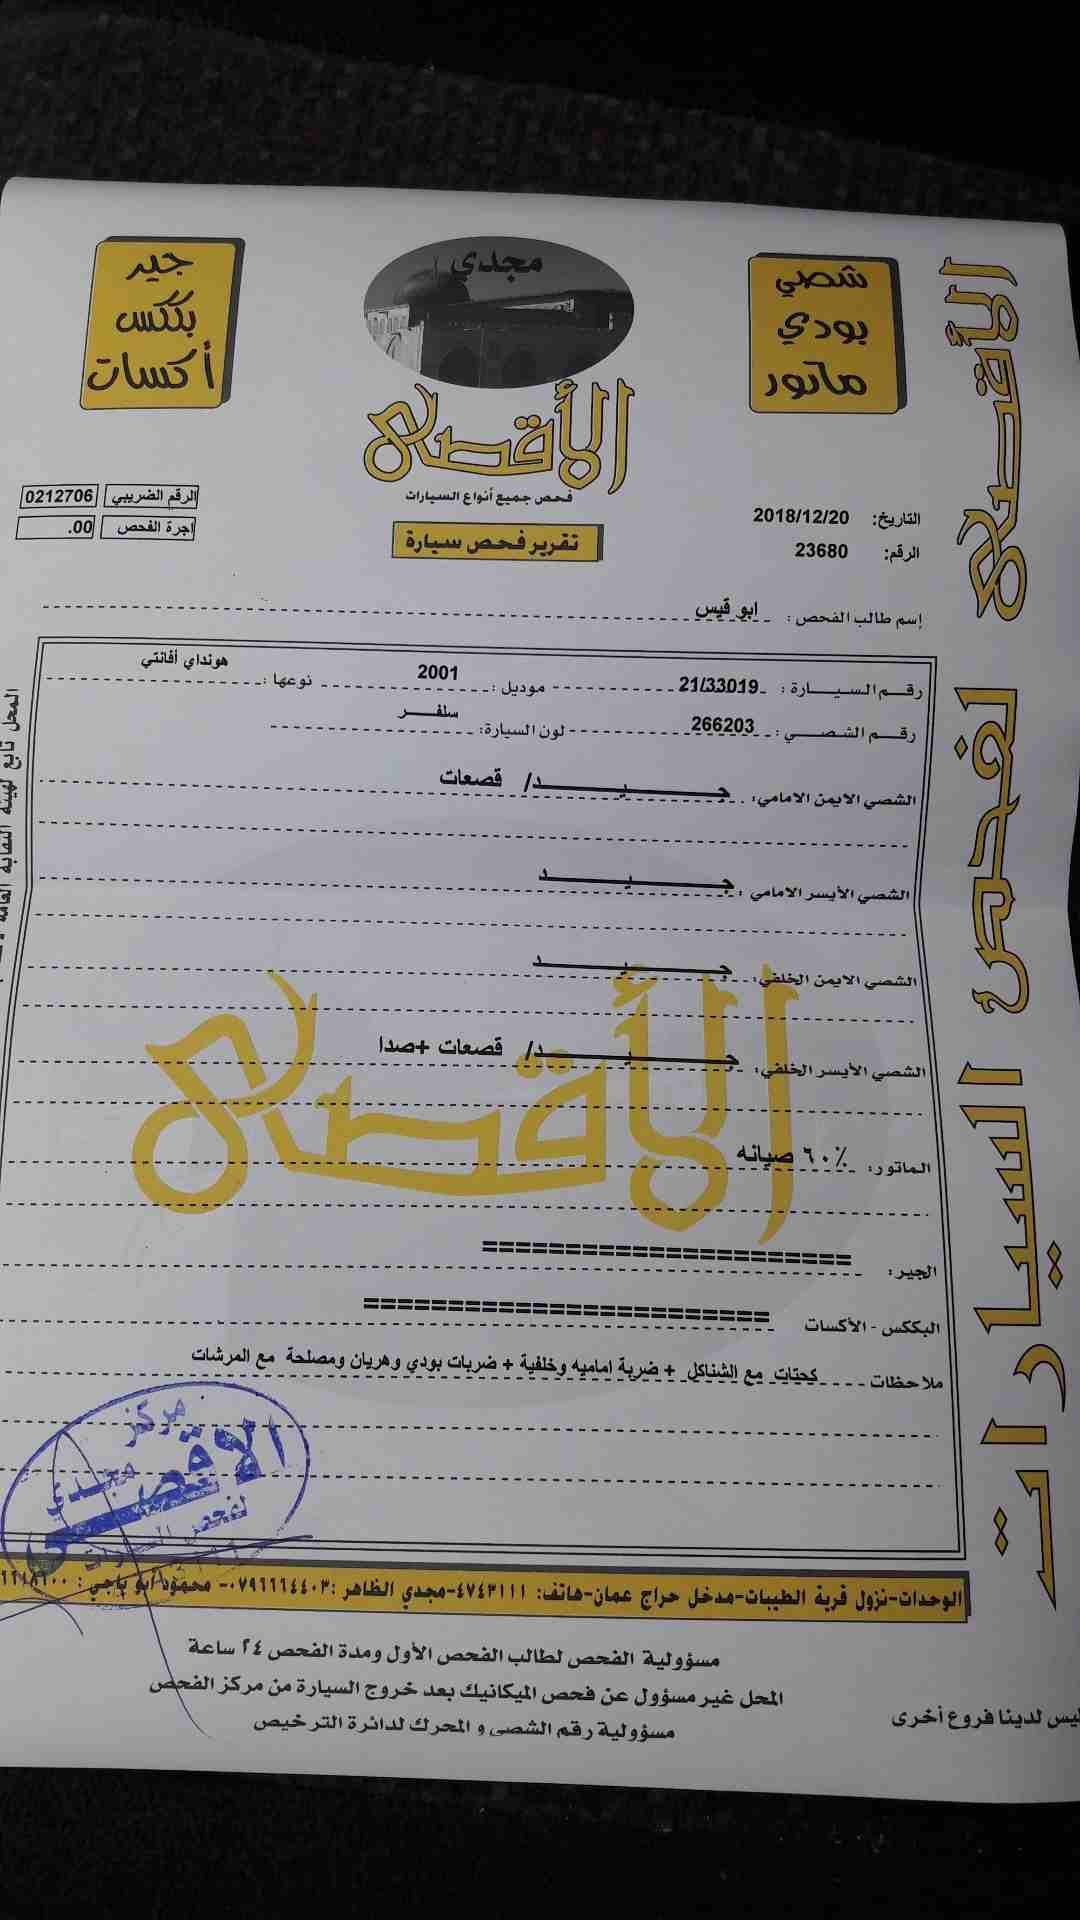 جير
بككس
أكسات
مجدي
الأقصى
فحص جميع أنواع السيارات
تقرير فحص سيارة
شصي
بودي
ماتور
الأقصى لفحص السيارات
الرقم الضريبي 0212706
اجرة الفحص .00
التاريخ: 2018/12/20
الرقم: 23680
إسم طالب الفحص: ابو قيس
رقم السيارة: 21/33019 موديل: 2001 نوعها: هونداي أفانتي
رقم الشصي: 266203 لون السيارة: سلفر
الشصي الايمن الامامي: جيد/ قصعات
الشصي الأيسر الامامي: جيد
الشصي الايمن الخلفي: جيد
الشصي الأيسر الخلفي: جيد/ قصعات +صدا
الماتور: ٦٠٪ صيانه
الجير: ======================
البككس - الأكسات ========================
ملاحظات كحتات مع الشناكل + ضربة اماميه وخلفية + ضربات بودي وهريان ومصلحة مع المرشات
الأقصى
مركز
الاقصى
مجدي
لفحص السيارات
المحل تابع لهيئة النقابة العامة
الوحدات-نزول قرية الطيبات-مدخل حراج عمان-هاتف: ٤٧٤٣١١١-مجدي الظاهر: ٠٧٩٦٦٦٤٤٠٣- محمود أبو
مسؤولية الفحص لطالب الفحص الأول ومدة الفحص ٢٤ ساعة
المحل غير مسؤول عن فحص الميكانيك بعد خروج السيارة من مركز الفحص
مسؤولية رقم الشصي و المحرك لدائرة الترخيص
ليس لدينا فروع أخرى